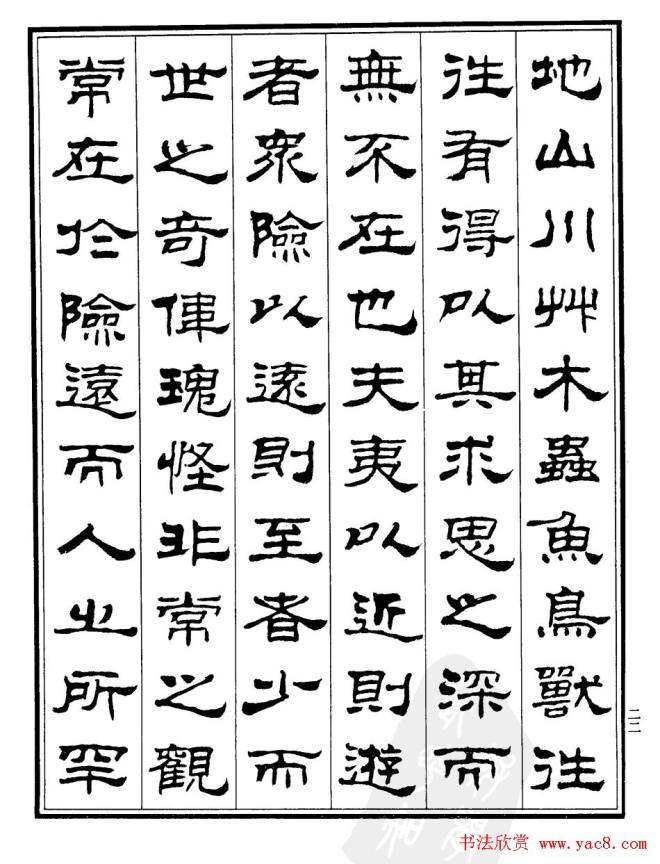 地山川艸木蟲魚鳥獸往
往有得以其求思之深而
無不在也夫夷以近則遊
者眾險以遠則至者少而
世之奇偉瑰怪非常之觀
常在於險遠而人之所罕
二三
书法欣赏 www.yac8.com